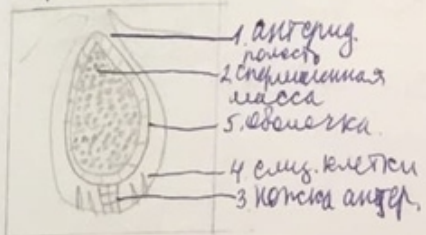 1. антерид.
полость
2 спермагенная
масса
5. оболочка
4 слиз. клетки
3 ножка антер.